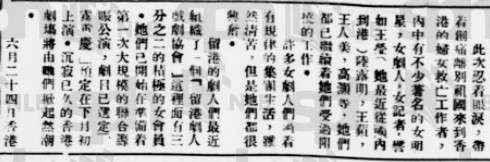 此次忍着眼淚，帶
着創痛離別祖國來到香
港的婦女救亡工作者，
內中有不少著名的女明
星，女劇人，女記者，譬
如王瑩（她最近從國內
到港）陸露明，王蘋，
王人美，高灝等。她們
都已繼續着她們受過開
境的工作。
許多女劇人們過着
有規律的集團生活，雖
然清苦，但是她們都很
興奮。
留港的劇人們最近
組織了一個「留港劇人
戲劇協會」這裡面有三
分之二的積極的女會員
。她們已開始在準備着
第一次大規模的聯合籌
賑公演，劇目已選定「
霧重慶」預定在下月初
上演。沉寂已久的香港
劇塲將由她們掀起熱潮
六月二十四月香港